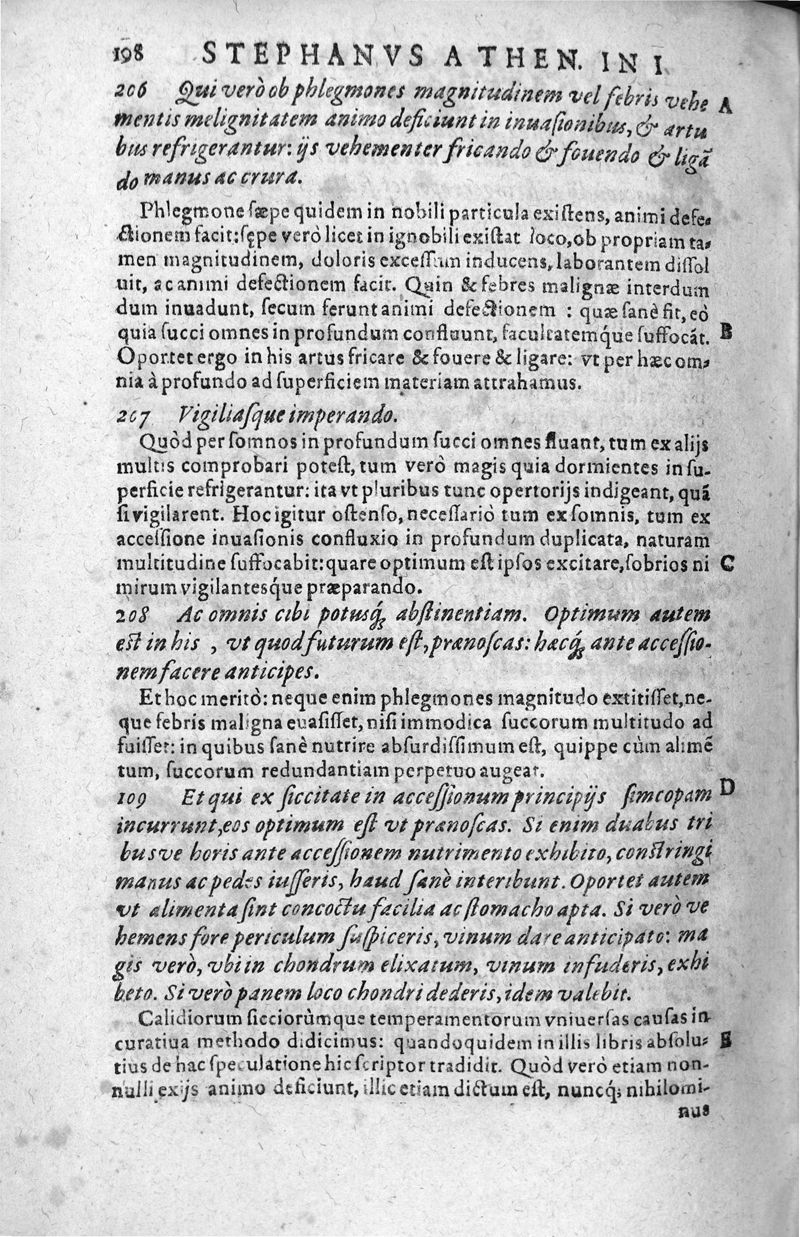 198 STEPHANVS ATHEN. IN I.
206 Qui verò ob phlegmones magnitudinem vel febris vehe A
mentis melignitatem animo deficiunt in inuasionibus, & artu
bus refrigerantur: ijs vehementer fricando & fouendo & ligã
do manus ac crura.
Phlegmone sæpe quidem in nobili particula existens, animi defe-
ctionem facit: sępe verò licet in ignobili existat loco, ob propriam ta-
men magnitudinem, doloris excessum inducens, laborantem dissol
uit, ac animi defectionem facit. Quin & febres malignæ interdum
dum inuadunt, secum ferunt animi defectionem : quæ sanè fit, eò
quia succi omnes in profundum confluunt, facultatemq́ue suffocãt. B
Oportet ergo in his artus fricare & fouere & ligare: vt per hæc om-
nia à profundo ad superficiem materiam attrahamus.
207 Vigiliasque imperando.
Quòd per somnos in profundum succi omnes fluant, tum ex alijs
multis comprobari potest, tum verò magis quia dormientes in su-
perficie refrigerantur: ita vt pluribus tunc opertorijs indigeant, quã
si vigilarent. Hoc igitur ostenso, necessariò tum ex somnis, tum ex
accessione inuasionis confluxio in profundum duplicata, naturam
multitudine suffocabit: quare optimum est ipsos excitare, sobrios ni C
mirum vigilantesq́ue præparando.
208 Ac omnis cibi potusq́ꝫ abstinentiam. Optimum autem
est in his , vt quod futurum est, prænoscas: hacq́ꝫ ante accessio-
nem facere anticipes.
Et hoc meritò: neque enim phlegmones magnitudo extitisset, ne-
que febris maligna euasisset, nisi immodica succorum multitudo ad
fuisset: in quibus sanè nutrire absurdissimum est, quippe cùm alimẽ
tum, succorum redundantiam perpetuo augeat.
109 Et qui ex siccitate in accessionum principijs simcopam D
incurrunt, eos optimum est vt prænoscas. Si enim duabus tri
busve horis ante accessionem nutrimento exhibito, constringi
manus ac pedes iusseris, haud sanè interibunt. Oportet autem
vt alimenta sint concoctu facilia ac stomacho apta. Si verò ve
hemens fore periculum suspiceris, vinum dare anticipato: ma
gis verò, vbi in chondrum elixatum, vinum infuderis, exhi
beto. Si verò panem loco chondri dederis, idem valebit.
Calidiorum sicciorùmque temperamentorum vniuersas causas in
curatiua methodo didicimus: quandoquidem in illis libris absolu- E
tius de hac speculatione hic scriptor tradidit. Quòd verò etiam non-
nulli ex ijs animo deficiunt, illic etiam dictum est, nuncq́ꝫ nihilomi-
nus